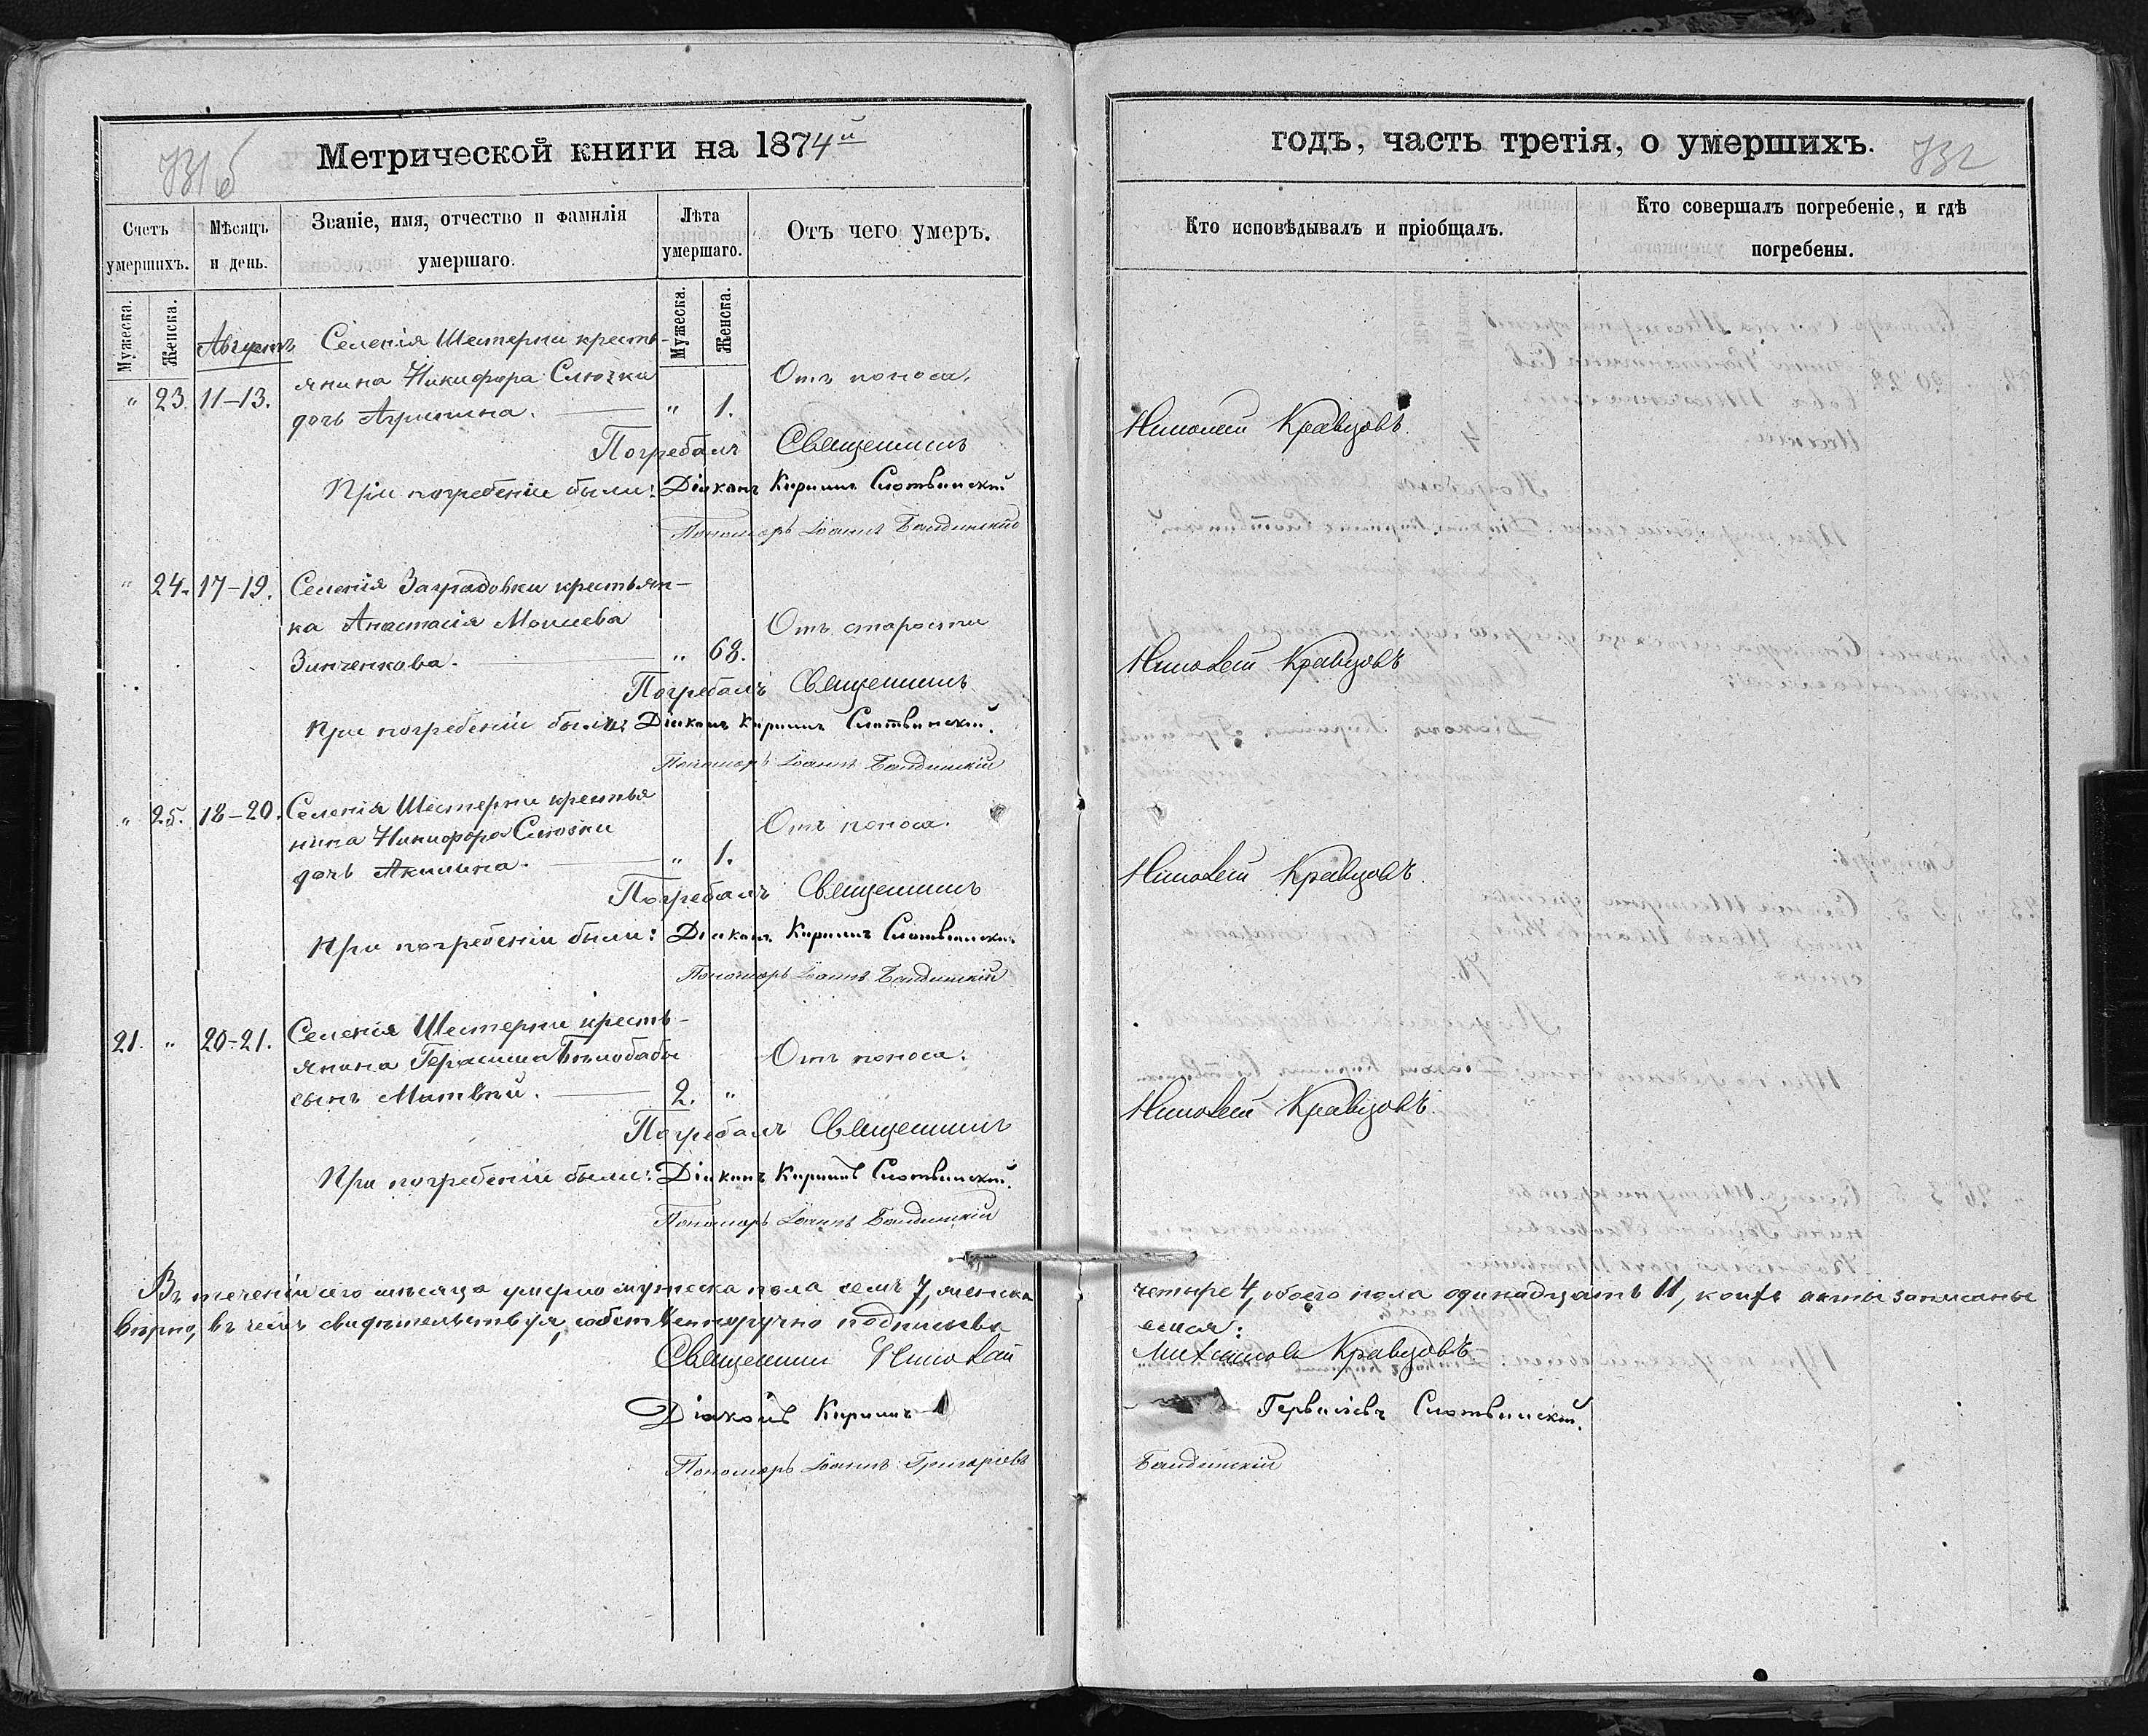 731 б
Метрической книги на 1874й
Счетъ умершихъ.
Мѣсяцъ и день.
Званіе, имя, отчество и фамилія умершаго.
Лѣта умершаго.
Отъ чего умеръ.
Мужеска.
Женска.
Мужеска.
Женска.
Августъ
Селенія Шестерни кресть-
янина Никифора Слюзки
Отъ поноса.
" 23. 11–13.
дочь Агрипина. " 1.
Погребалъ Священникъ
При погребеніи были: Діаконъ Кириллъ Слотвинскій
Пономарь Іоаннъ Бандинскій
" 24. 17–19. Селенія Заградовки крестьян-
ка Анастасія Моисеева
Отъ старости
Зинченкова. " 68.
Погребалъ Священникъ
При погребеніи были: Діаконъ Кириллъ Слотвинскій.
Пономарь Іоаннъ Бандинскій
" 25. 18–20. Селенія Шестерни крестья
нина Никифора Слюзки
Отъ поноса.
дочь Акилина. " 1.
Погребалъ Священникъ
При погребеніи были: Діаконъ Кириллъ Слотвинскій
Пономарь Іоаннъ Бандинскій
21. " 20–21. Селенія Шестерни кресть-
янина Герасима Бѣлобабы
Отъ поноса.
сынъ Матвѣй. 2. "
Погребалъ Священникъ
При погребеніи были: Діаконъ Кириллъ Слотвинскій.
Пономарь Іоаннъ Бандинскій
Въ теченіи сего мѣсяца умерло мужеска пола семь 7, женска
вѣрно, въ чемъ свидѣтельствуя, собственноручно подписыва
Священникъ Николай
Діаконъ Кириллъ
Пономарь Іоаннъ Григоріевъ
годъ, часть третія, о умершихъ.
732
Кто исповѣдывалъ и пріобщалъ.
Кто совершалъ погребеніе, и гдѣ погребены.
Николай Кравцовъ.
Николай Кравцовъ
Николай Кравцовъ.
Николай Кравцовъ.
четыре 4, обоего пола одинадцать 11, коихъ акты записаны
емся:
Михаиловъ Кравцовъ
Слотвинскій.
Бандинскій